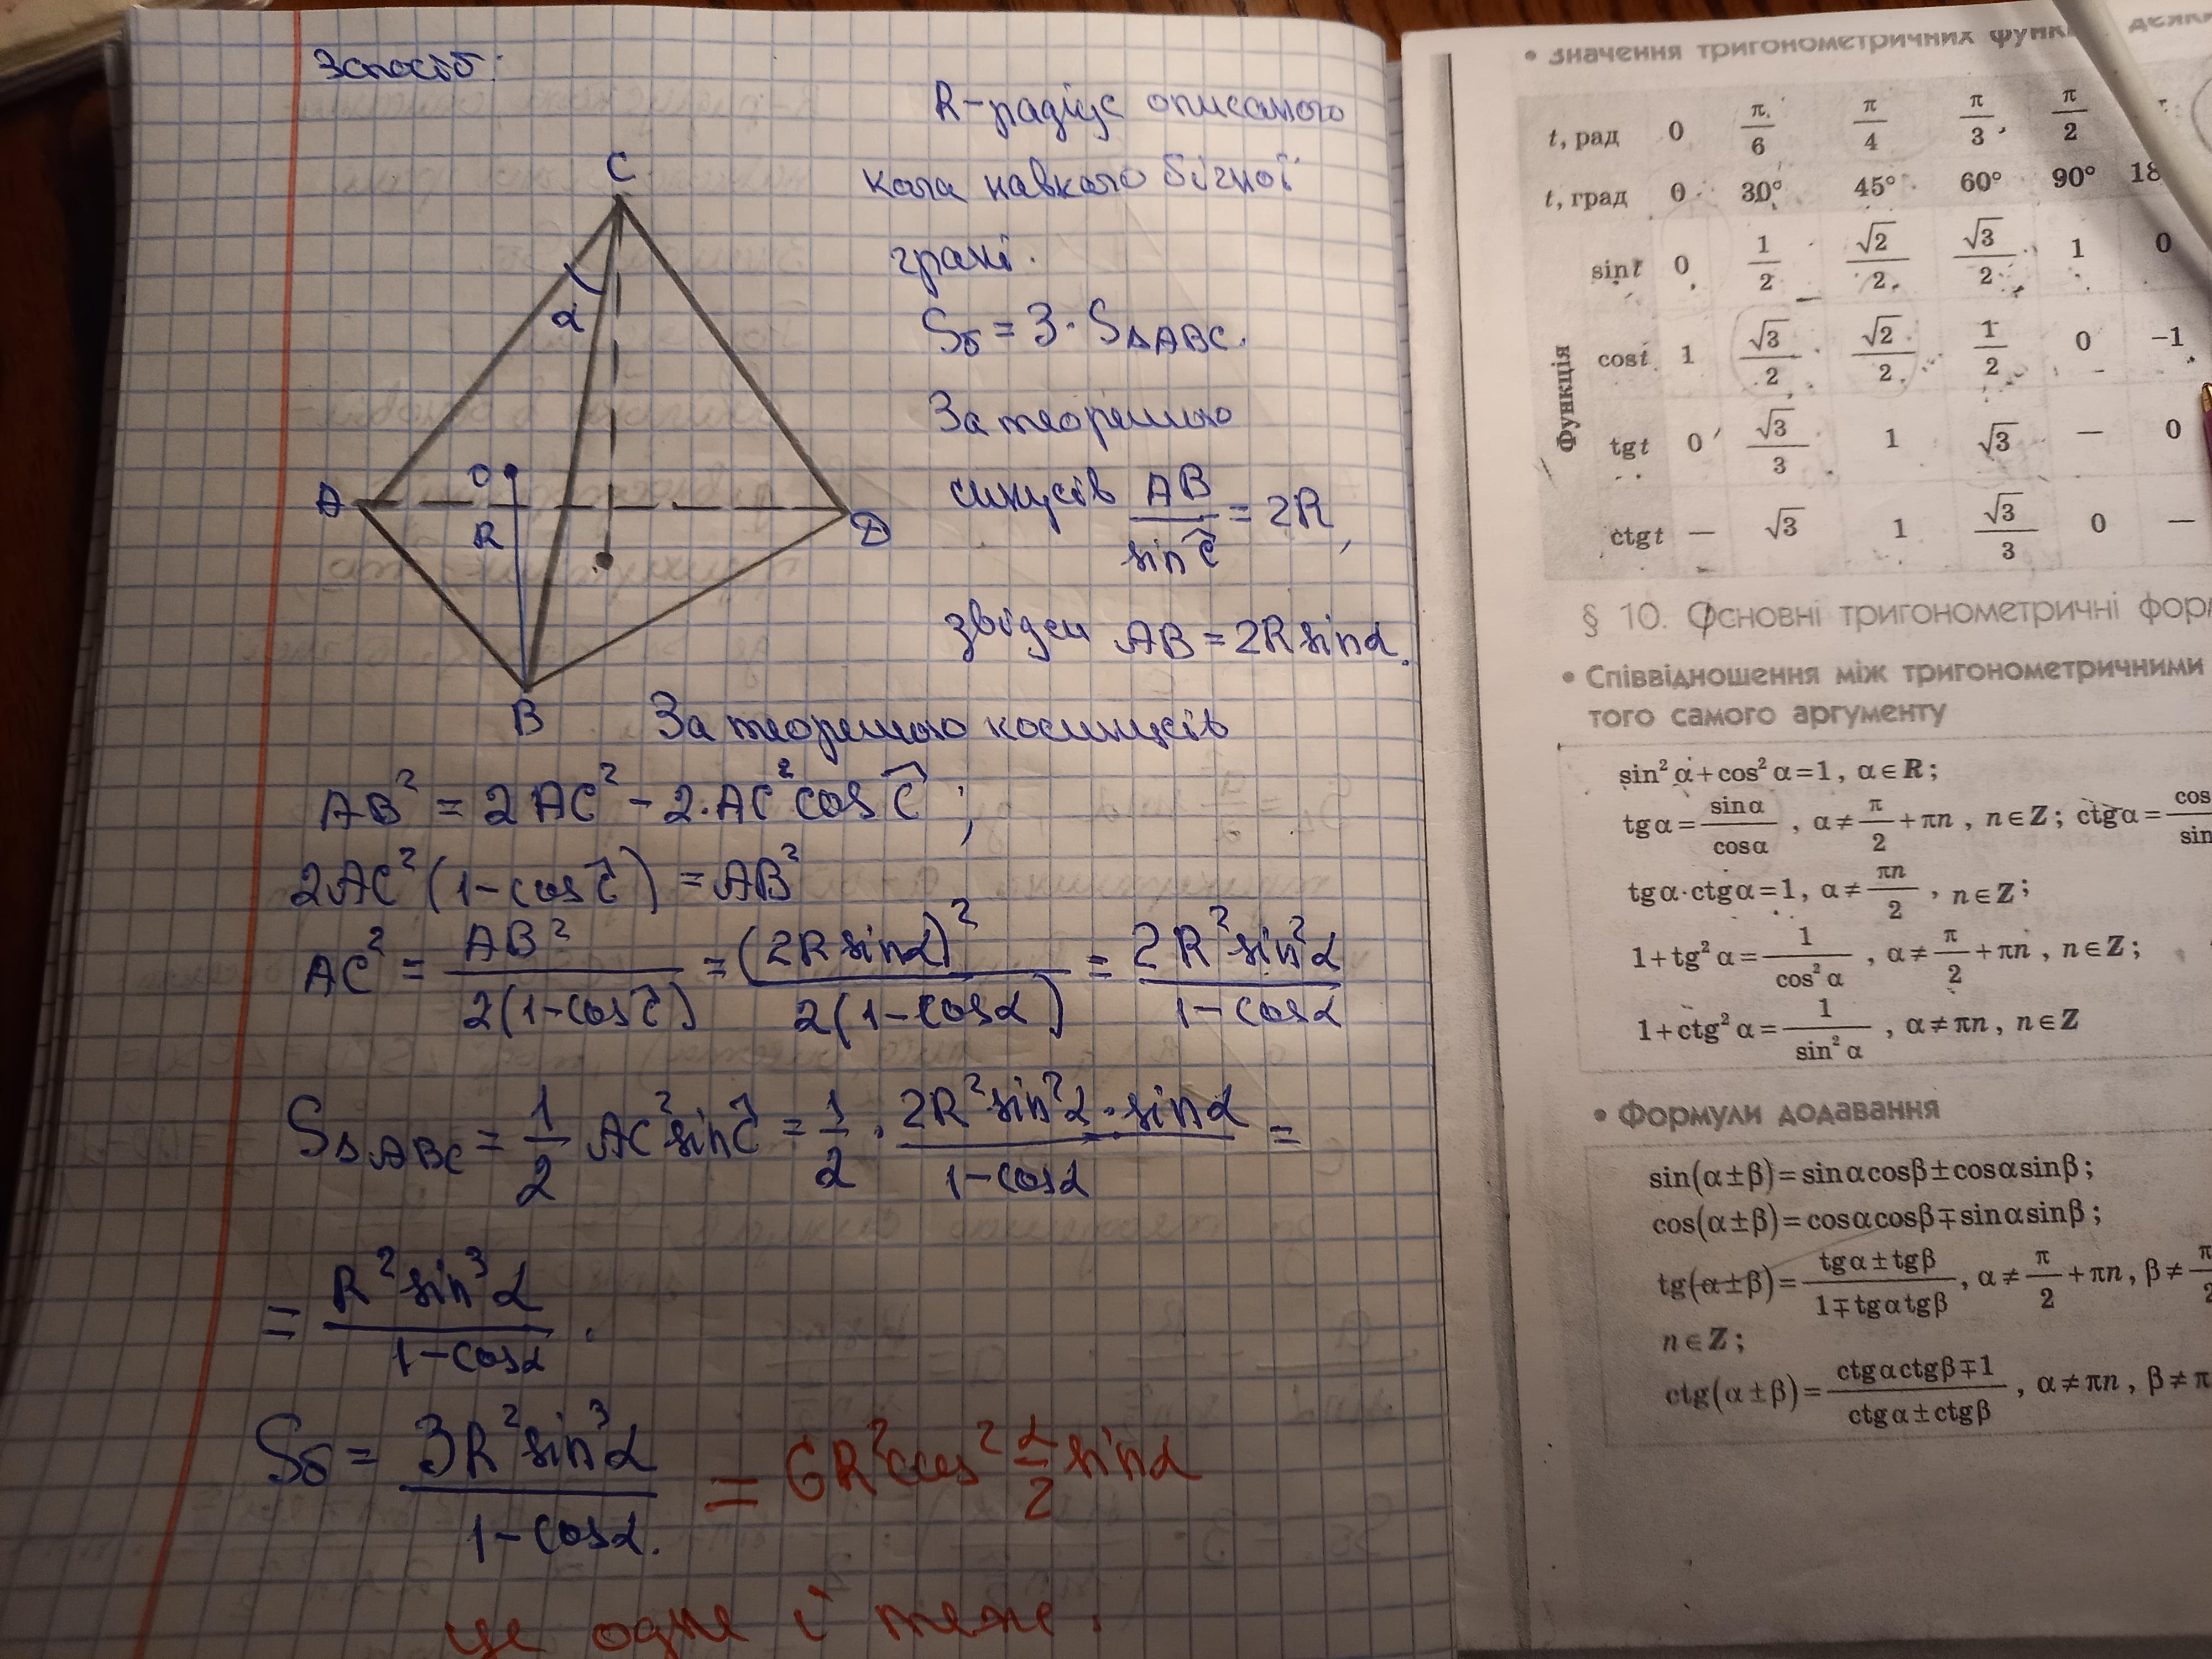 3 спосіб:
R-радіус описаного
кола навколо бічної
грані.
Sб = 3·S△ABC.
За теоремою
синусів AB/sin C = 2R,
звідси AB = 2R sinα.
C
α
A
O
R
D
B
За теоремою косинусів
AB² = 2AC² - 2·AC² cos C ;
2AC² (1-cos C) = AB²
AC² = AB²/2(1-cos C) = (2R sinα)²/2(1-cosα) = 2R² sin²α/1-cosα
S△ABC = 1/2 AC² sin C = 1/2 · 2R² sin²α · sinα/1-cosα =
= R² sin³α/1-cosα .
Sб = 3R² sin³α/1-cosα. = 6R² cos² α/2 sinα
це одне і теже.
• Значення тригонометричних функ
t, рад 0 π/6 π/4 π/3 π/2
t, град 0 30° 45° 60° 90° 18
Функція
sin t 0 1/2 √2/2 √3/2 1 0
cos t 1 √3/2 √2/2 1/2 0 −1
tg t 0 √3/3 1 √3 — 0
ctg t — √3 1 √3/3 0 —
§ 10. Основні тригонометричні фор
• Співвідношення між тригонометричними
того самого аргументу
sin² α + cos² α = 1, α ∈ R;
tg α = sin α/cos α, α ≠ π/2 + πn, n ∈ Z; ctg α = cos/sin
tg α · ctg α = 1, α ≠ πn/2, n ∈ Z;
1 + tg² α = 1/cos² α, α ≠ π/2 + πn, n ∈ Z;
1 + ctg² α = 1/sin² α, α ≠ πn, n ∈ Z
• Формули додавання
sin(α ± β) = sin α cos β ± cos α sin β;
cos(α ± β) = cos α cos β ∓ sin α sin β;
tg(α ± β) = tg α ± tg β/1 ∓ tg α tg β, α ≠ π/2 + πn, β ≠ π/2
n ∈ Z;
ctg(α ± β) = ctg α ctg β ∓ 1/ctg α ± ctg β, α ≠ πn, β ≠ π